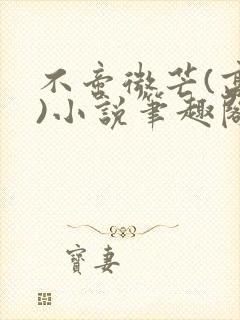 不啻微芒(高
)小說筆趣閣
寶妻